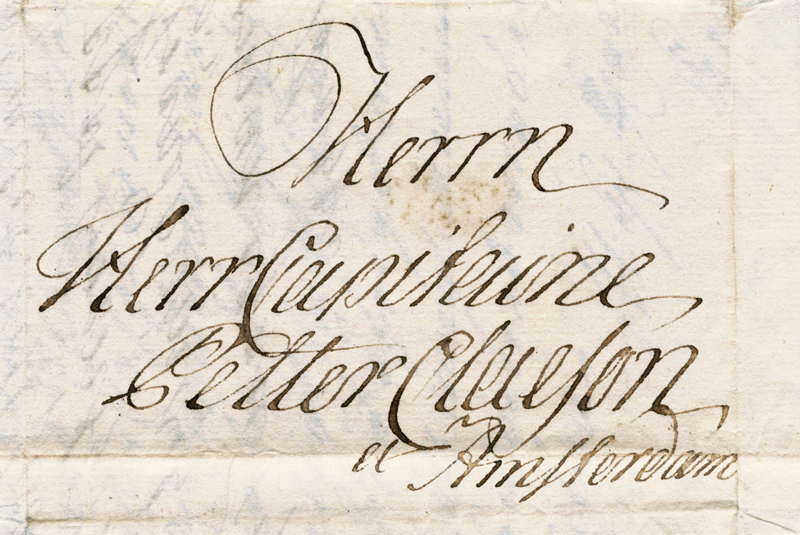 Herrn
Herr Capitaine
Petter Claeson
a Amsterdam